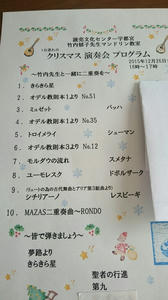 読売文化センター宇都宮
竹内郁子先生マンドリン教室
1日遅れの
クリスマス 演奏会 プログラム
2015年12月26日
15時～17時
～竹内先生と一緒に二重奏を～
1. きらきら星
2. オデル教則本1より No.51
3. ミュゼット バッハ
4. オデル教則本1より No.35
5. トロイメライ シューマン
6. オデル教則本3より No.12
7. モルダウの流れ スメタナ
8. ユーモレスク ドボルザーク
9. リュートの為の古代舞曲とアリア第3組曲より
シチリアーノ レスピーギ
10. MAZAS二重奏曲～RONDO
～皆で弾きましょう～
夢路より
きらきら星
聖者の行進
第九